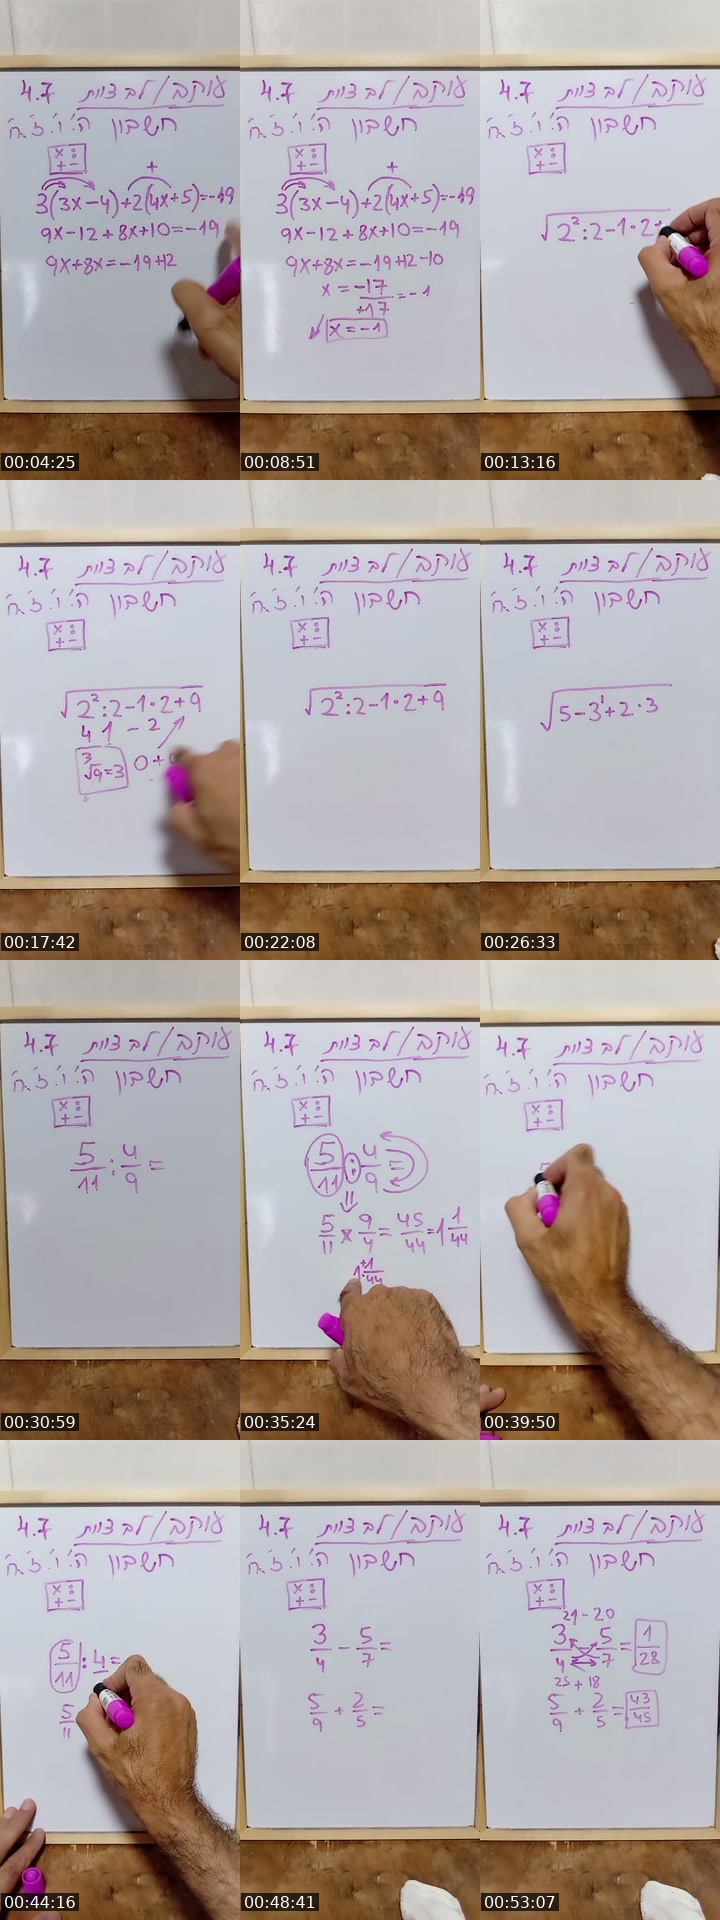 4.7 עוקב/לב צוות
חשבון ה'. ו'. ז'. ח'.
× :
+ −
+
3(3x−4)+2(4x+5)=−19
9x−12+8x+10=−19
9x+8x=−19+12
00:04:25
4.7 עוקב/לב צוות
חשבון ה'. ו'. ז'. ח'.
× :
+ −
+
3(3x−4)+2(4x+5)=−19
9x−12+8x+10=−19
9x+8x=−19+12−10
x = −17/+17 = −1
x = −1
00:08:51
4.7 עוקב/לב צוות
חשבון ה'. ו'. ז'. ח'.
× :
+ −
√2²:2−1·2+
00:13:16
4.7 עוקב/לב צוות
חשבון ה'. ו'. ז'. ח'.
× :
+ −
√2²:2−1·2+9
4 1 − 2
3
√9=3 0+
00:17:42
4.7 עוקב/לב צוות
חשבון ה'. ו'. ז'. ח'.
× :
+ −
√2²:2−1·2+9
00:22:08
4.7 עוקב/לב צוות
חשבון ה'. ו'. ז'. ח'.
× :
+ −
√5−3¹+2·3
00:26:33
4.7 עוקב/לב צוות
חשבון ה'. ו'. ז'. ח'.
× :
+ −
5/11 : 4/9 =
00:30:59
4.7 עוקב/לב צוות
חשבון ה'. ו'. ז'. ח'.
× :
+ −
5/11 : 4/9 =
=
5/11 × 9/4 = 45/44 = 1 1/44
1+1/44
00:35:24
4.7 עוקב/לב צוות
חשבון ה'. ו'. ז'. ח'.
× :
+ −
00:39:50
4.7 עוקב/לב צוות
חשבון ה'. ו'. ז'. ח'.
× :
+ −
5/11 : 4 =
5/11
00:44:16
4.7 עוקב/לב צוות
חשבון ה'. ו'. ז'. ח'.
× :
+ −
3/4 − 5/7 =
5/9 + 2/5 =
00:48:41
4.7 עוקב/לב צוות
חשבון ה'. ו'. ז'. ח'.
× :
+ −
21−20
3/4 5/7 = 1/28
25+18
5/9 + 2/5 = 43/45
00:53:07